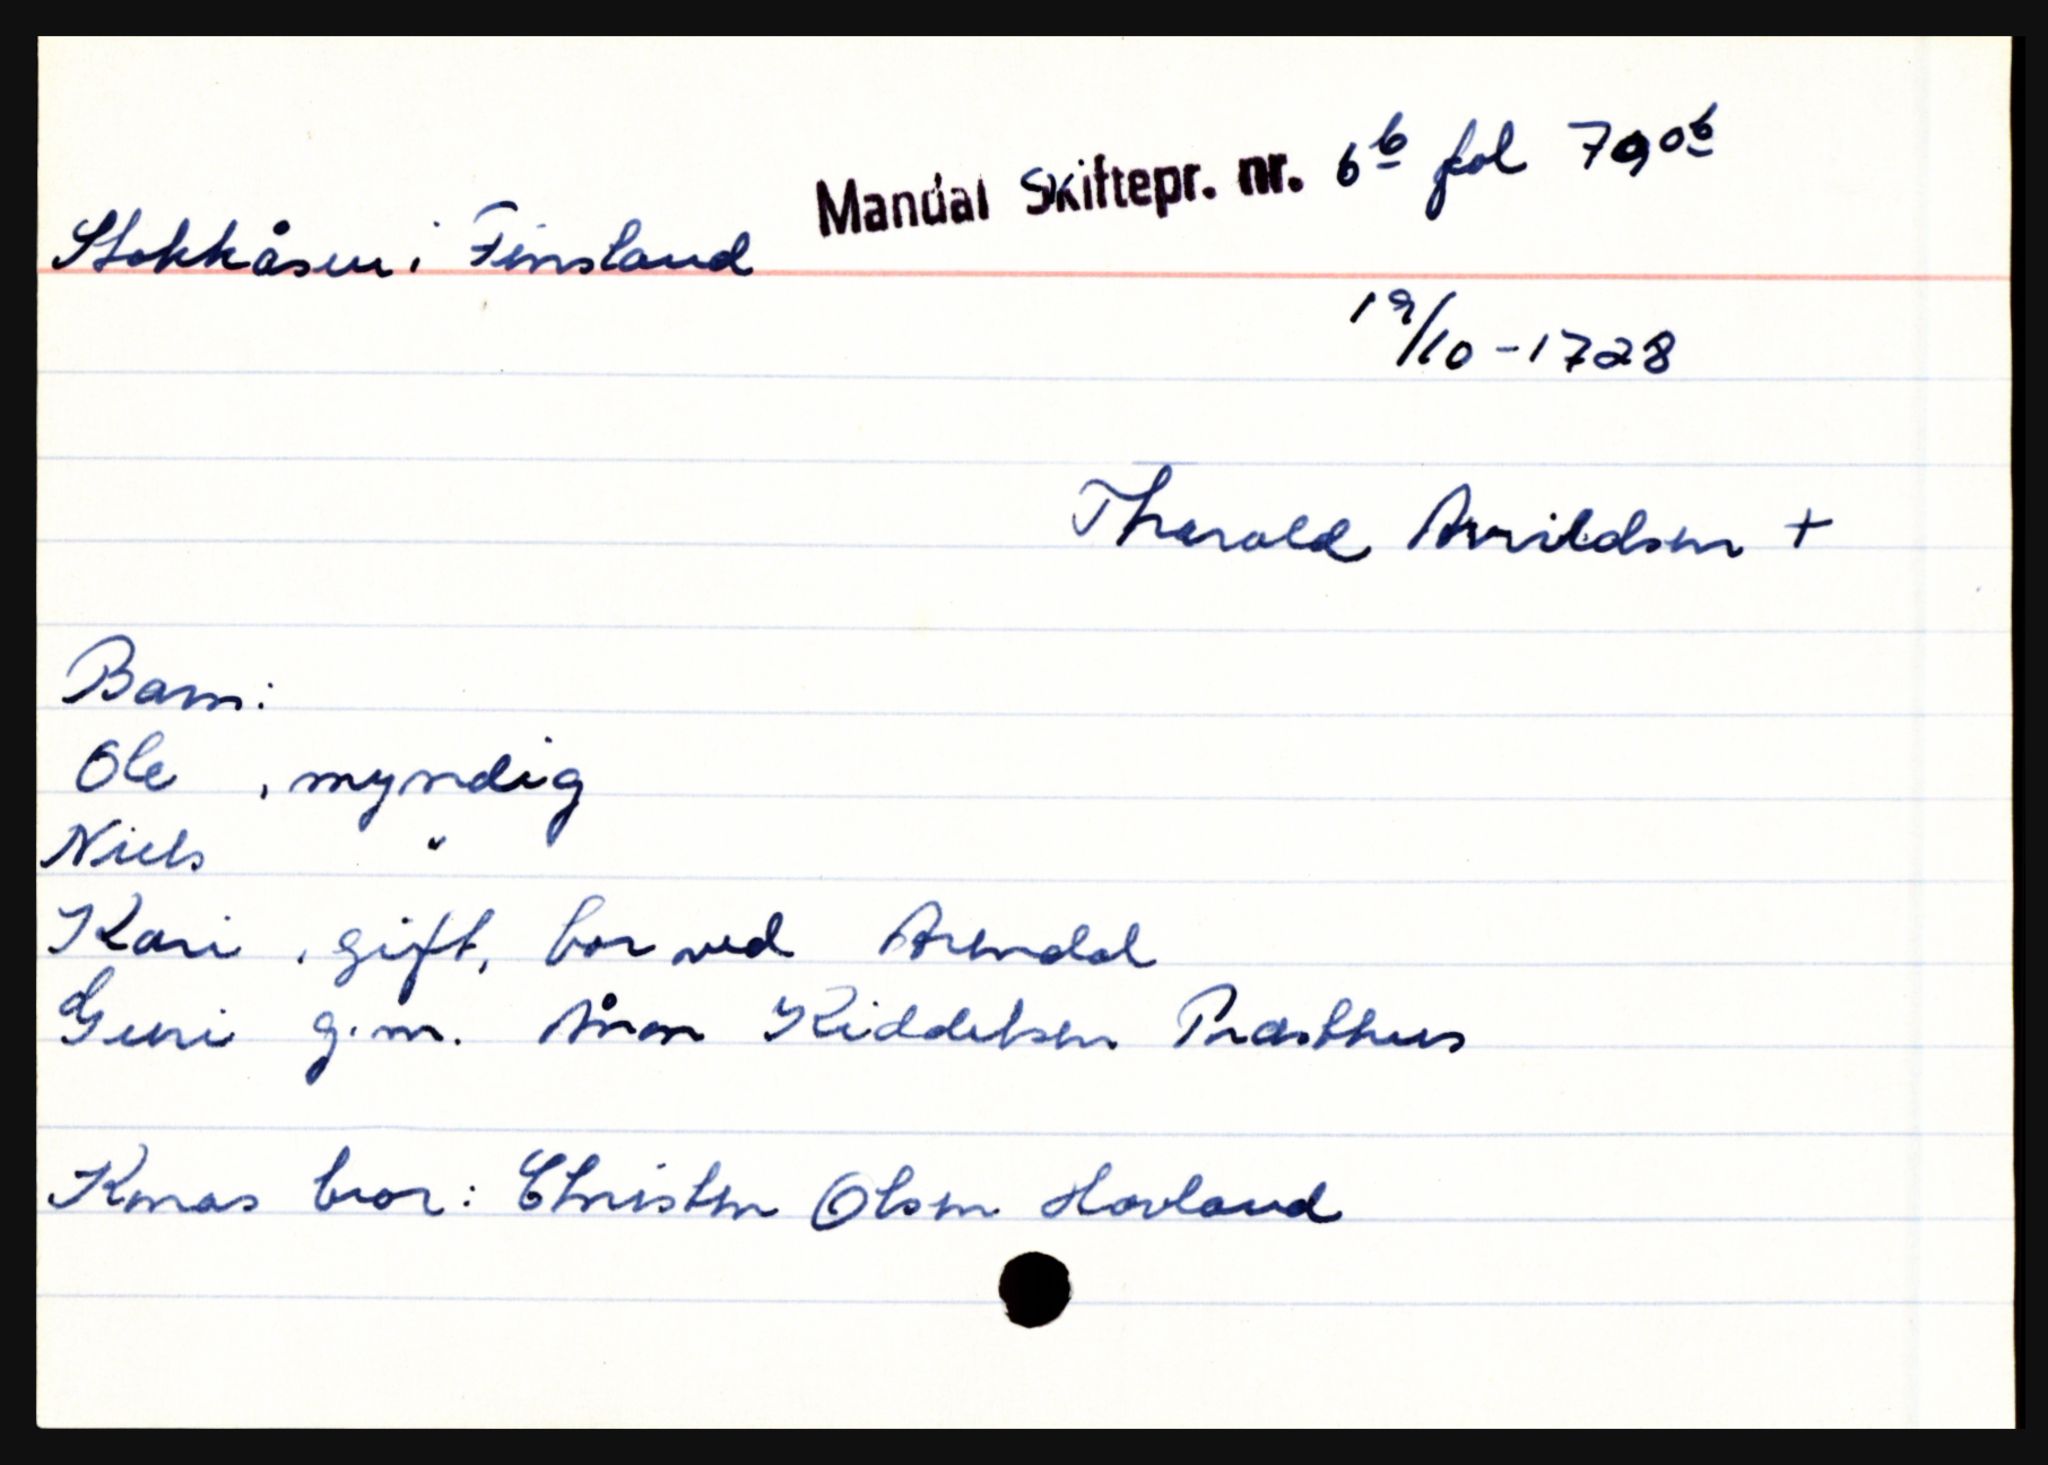 Mandal Skiftepr. nr. 6b fol 790b
Stokkåsen i Finsland
19/10-1728
Tharald Arvildsen +
Barn:
Ole , myndig
Niels "
Kari , gift, bor ved Arendal
Guri g.m. Ånon Kiddelsen Præsthus
Konas bror: Christen Olsen Hovland